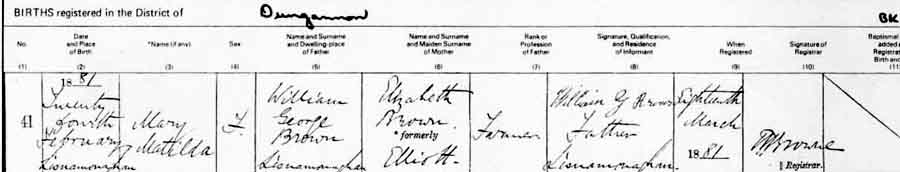 BIRTHS registered in the District of Dungannon BK
No. Date and Place of Birth *Name (if any) Sex Name and Surname and Dwelling-place of Father Name and Surname and Maiden Surname of Mother Rank or Profession of Father Signature, Qualification, and Residence of Informant When Registered Signature of Registrar Baptismal added Registrat Birth and
(1) (2) (3) (4) (5) (6) (7) (8) (9) (10) (11
41
18 81
Twenty
fourth
February
Lisnamonaghan
Mary
Matilda
F.
William
George
Brown
Lisnamonaghan
Elizabeth
Brown
*formerly
Elliott
Farmer
William G Brown
Father
Lisnamonaghan.
Eighteenth
March
18 81
Browne
Registrar.